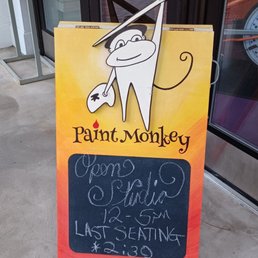 Paint Monkey
Open
Studio
12-5PM
LAST SEATING
*2:30